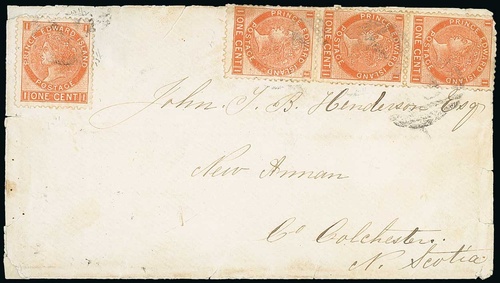 PRINCE EDWARD ISLAND
POSTAGE
1 ONE CENT 1
PRINCE EDWARD ISLAND
POSTAGE
1 ONE CENT 1
PRINCE EDWARD ISLAND
POSTAGE
1 ONE CENT 1
PRINCE EDWARD ISLAND
POSTAGE
1 ONE CENT 1
John T. B. Henderson Esq
New Annan
Co Colchester.
N. Scotia